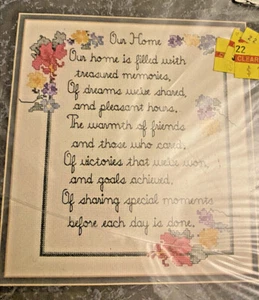 Our Home
Our home is filled with
treasured memories,
Of dreams we've shared,
and pleasant hours,
The warmth of friends
and those who cared,
Of victories that we've won,
and goals achieved,
Of sharing special moments
before each day is done.
22
22